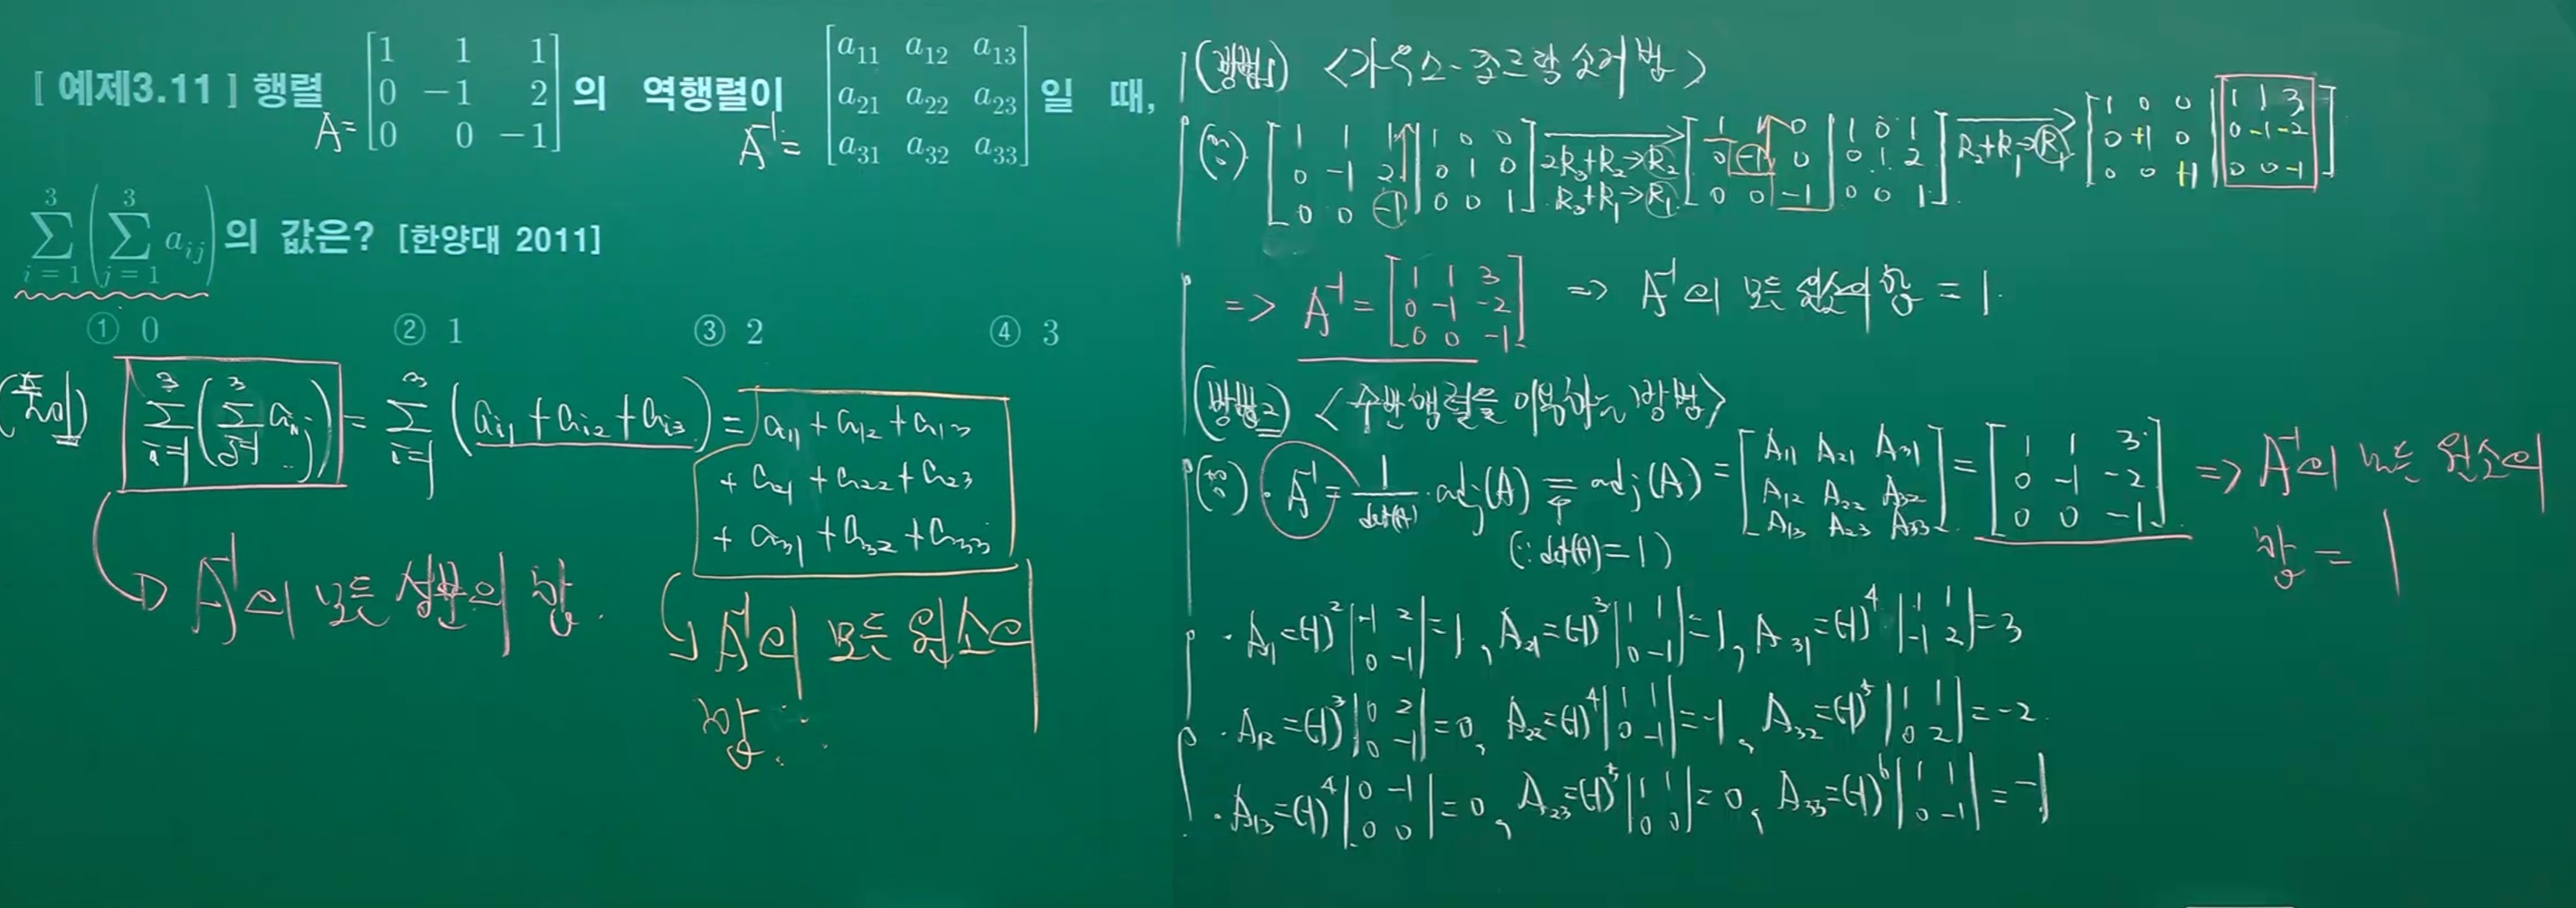 [ 예제3.11 ] 행렬 A= [1 1 1; 0 -1 2; 0 0 -1] 의 역행렬이 A⁻¹= [a₁₁ a₁₂ a₁₃; a₂₁ a₂₂ a₂₃; a₃₁ a₃₂ a₃₃] 일 때,
∑_{i=1}^{3} (∑_{j=1}^{3} a_{ij}) 의 값은? [한양대 2011]
① 0 ② 1 ③ 2 ④ 3
(풀이) ∑_{i=1}^{3} (∑_{j=1}^{3} a_{ij}) = ∑_{i=1}^{3} (a_{i1} + a_{i2} + a_{i3}) = a₁₁ + a₁₂ + a₁₃
+ a₂₁ + a₂₂ + a₂₃
+ a₃₁ + a₃₂ + a₃₃
A⁻¹의 모든 성분의 합.
A⁻¹의 모든 원소의
합.
(방법1) <가우스-조르단 소거법>
[1 1 1 | 1 0 0; 0 -1 2 | 0 1 0; 0 0 -1 | 0 0 1] 2R₃+R₂→R₂ R₃+R₁→R₁ [1 1 0 | 1 0 1; 0 -1 0 | 0 1 2; 0 0 -1 | 0 0 1] R₂+R₁→R₁ [1 0 0 | 1 1 3; 0 +1 0 | 0 -1 -2; 0 0 +1 | 0 0 -1]
=> A⁻¹ = [1 1 3; 0 -1 -2; 0 0 -1] => A⁻¹의 모든 원소의 합 = 1.
(방법2) <수반행렬을 이용하는 방법>
A⁻¹ = 1/det(A) · adj(A) = adj(A) = [A₁₁ A₂₁ A₃₁; A₁₂ A₂₂ A₃₂; A₁₃ A₂₃ A₃₃] = [1 1 3; 0 -1 -2; 0 0 -1] => A⁻¹의 모든 원소의
(∵ det(A)=1)
합 = 1
· A₁₁=(-1)² |-1 2; 0 -1| =1, A₂₁=(-1)³ |1 1; 0 -1| =1, A₃₁=(-1)⁴ |1 1; -1 2| =3
· A₁₂=(-1)³ |0 2; 0 -1| =0, A₂₂=(-1)⁴ |1 1; 0 -1| =-1, A₃₂=(-1)⁵ |1 1; 0 2| =-2.
· A₁₃=(-1)⁴ |0 -1; 0 0| =0, A₂₃=(-1)⁵ |1 1; 0 0| =0, A₃₃=(-1)⁶ |1 1; 0 -1| =-1